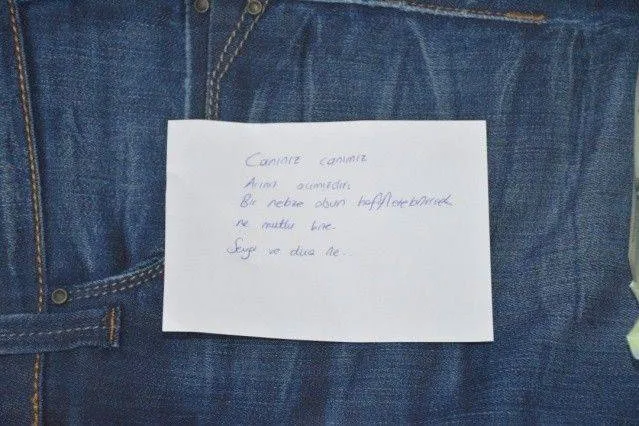 Canınız canımız
Acınız acımızdır.
Bir nebze olsun hafifletebilirsek
ne mutlu bize.
Sevgi ve dua ile..